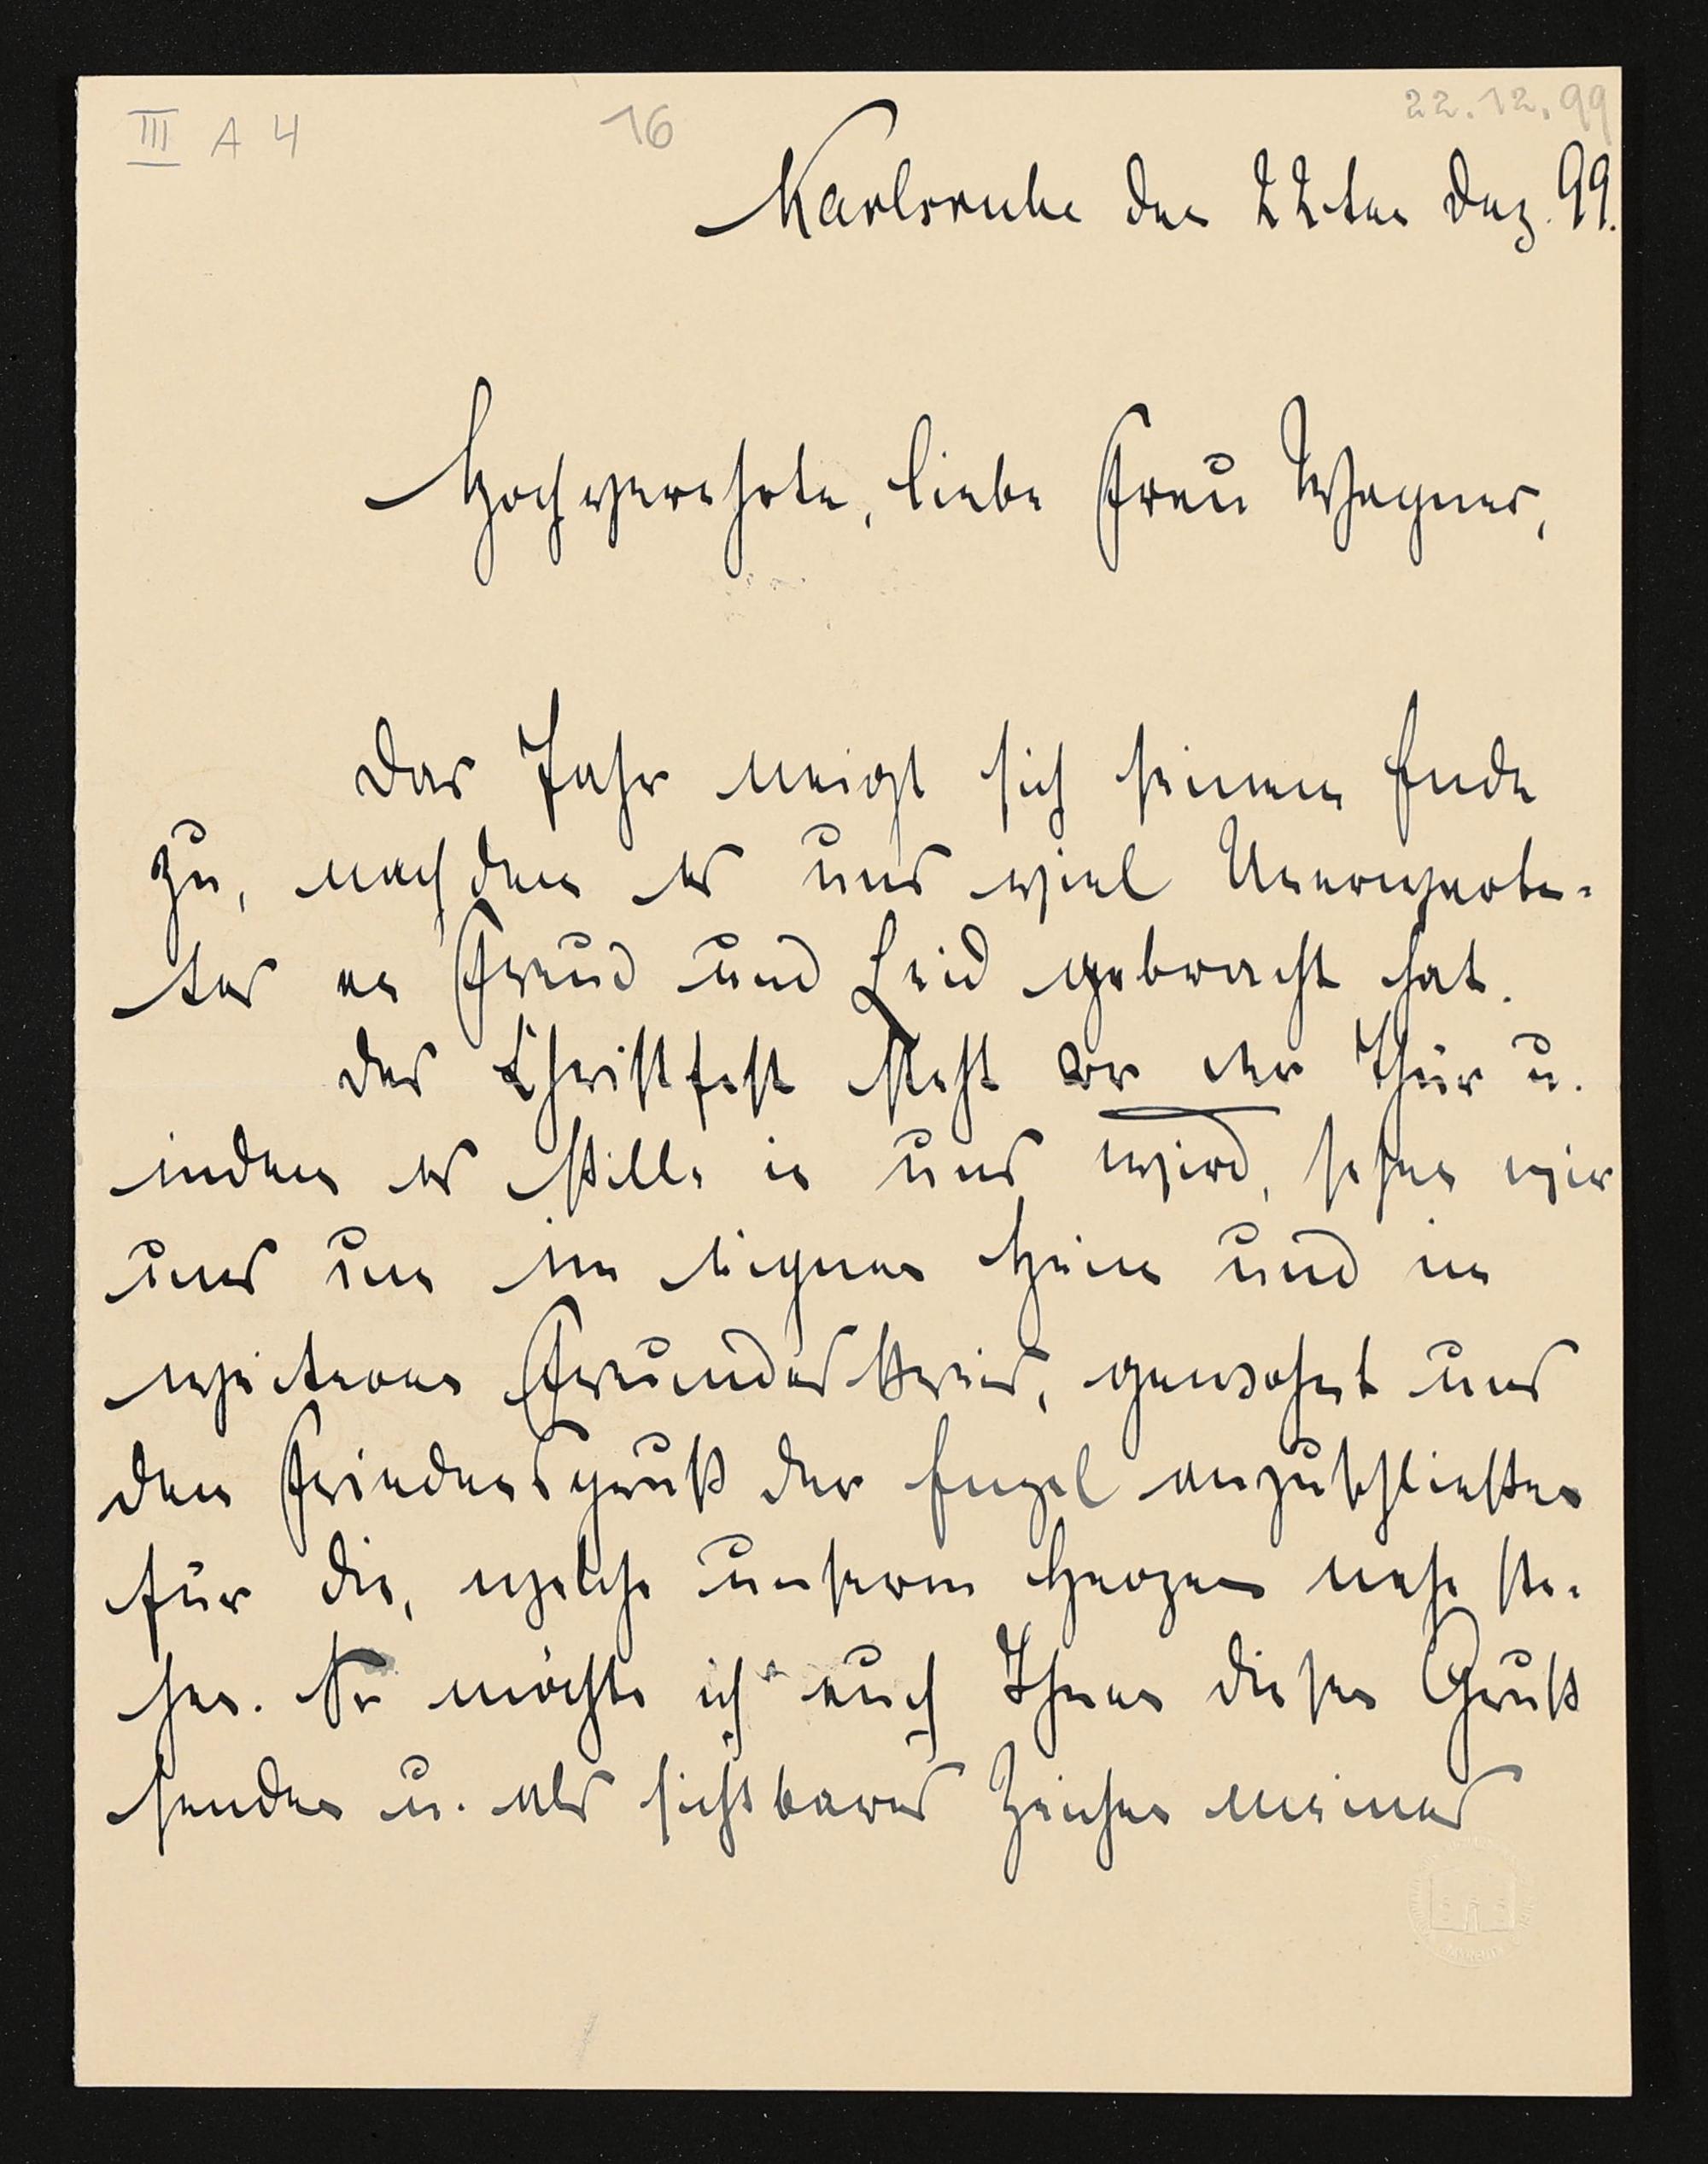 III A 4 16 22.12.99
Karlsruhe den 22ten Dez. 99.
Hochverehrte, liebe Frau Wagner,
Das Jahr neigt sich seinem Ende
zu, nachdem es uns viel Unerwarte-
tes an Freud und Leid gebracht hat.
Das Christfest steht vor der Thür u.
indem es stille in uns wird, sehen wir
uns um im eignen Heim und im
weiteren Freundeskreis, gewohnt uns
dem Friedensgruß der Engel anzuschließen
für die, welche unserem Herzen nahe ste-
hen. So möchte ich auch Ihnen diesen Gruß
senden u. als sichtbares Zeichen meines